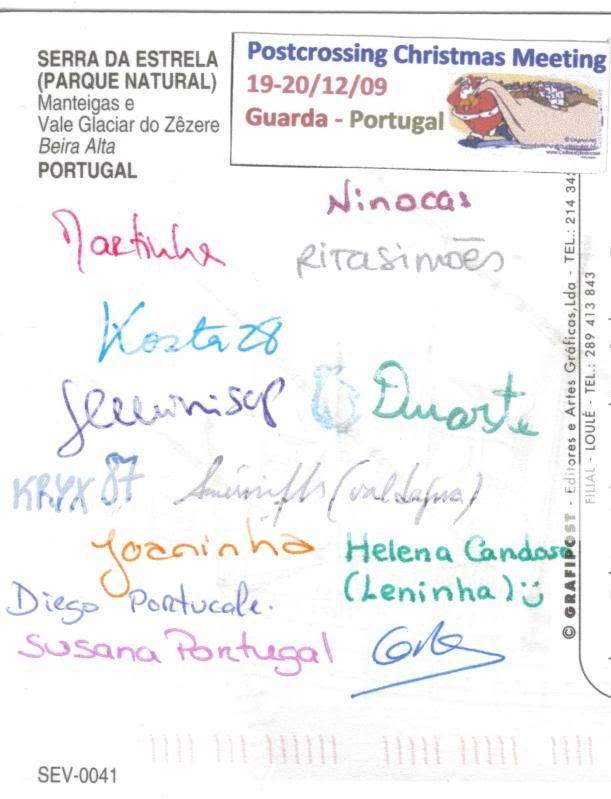 SERRA DA ESTRELA
(PARQUE NATURAL)
Manteigas e
Vale Glaciar do Zêzere
Beira Alta
PORTUGAL
Postcrossing Christmas Meeting
19-20/12/09
Guarda - Portugal
Ninocas
Martinha
RITASIMÕES
Kosta28
Duarte
KRYX87
(valdagua)
Joaninha
Helena Candoso
(Leninha)
Diego Portucale.
Susana Portugal
© GRAFIPOST - Editores e Artes Gráficas, Lda - TEL.: 214 34
FILIAL - LOULÉ - TEL.: 289 413 843
SEV-0041